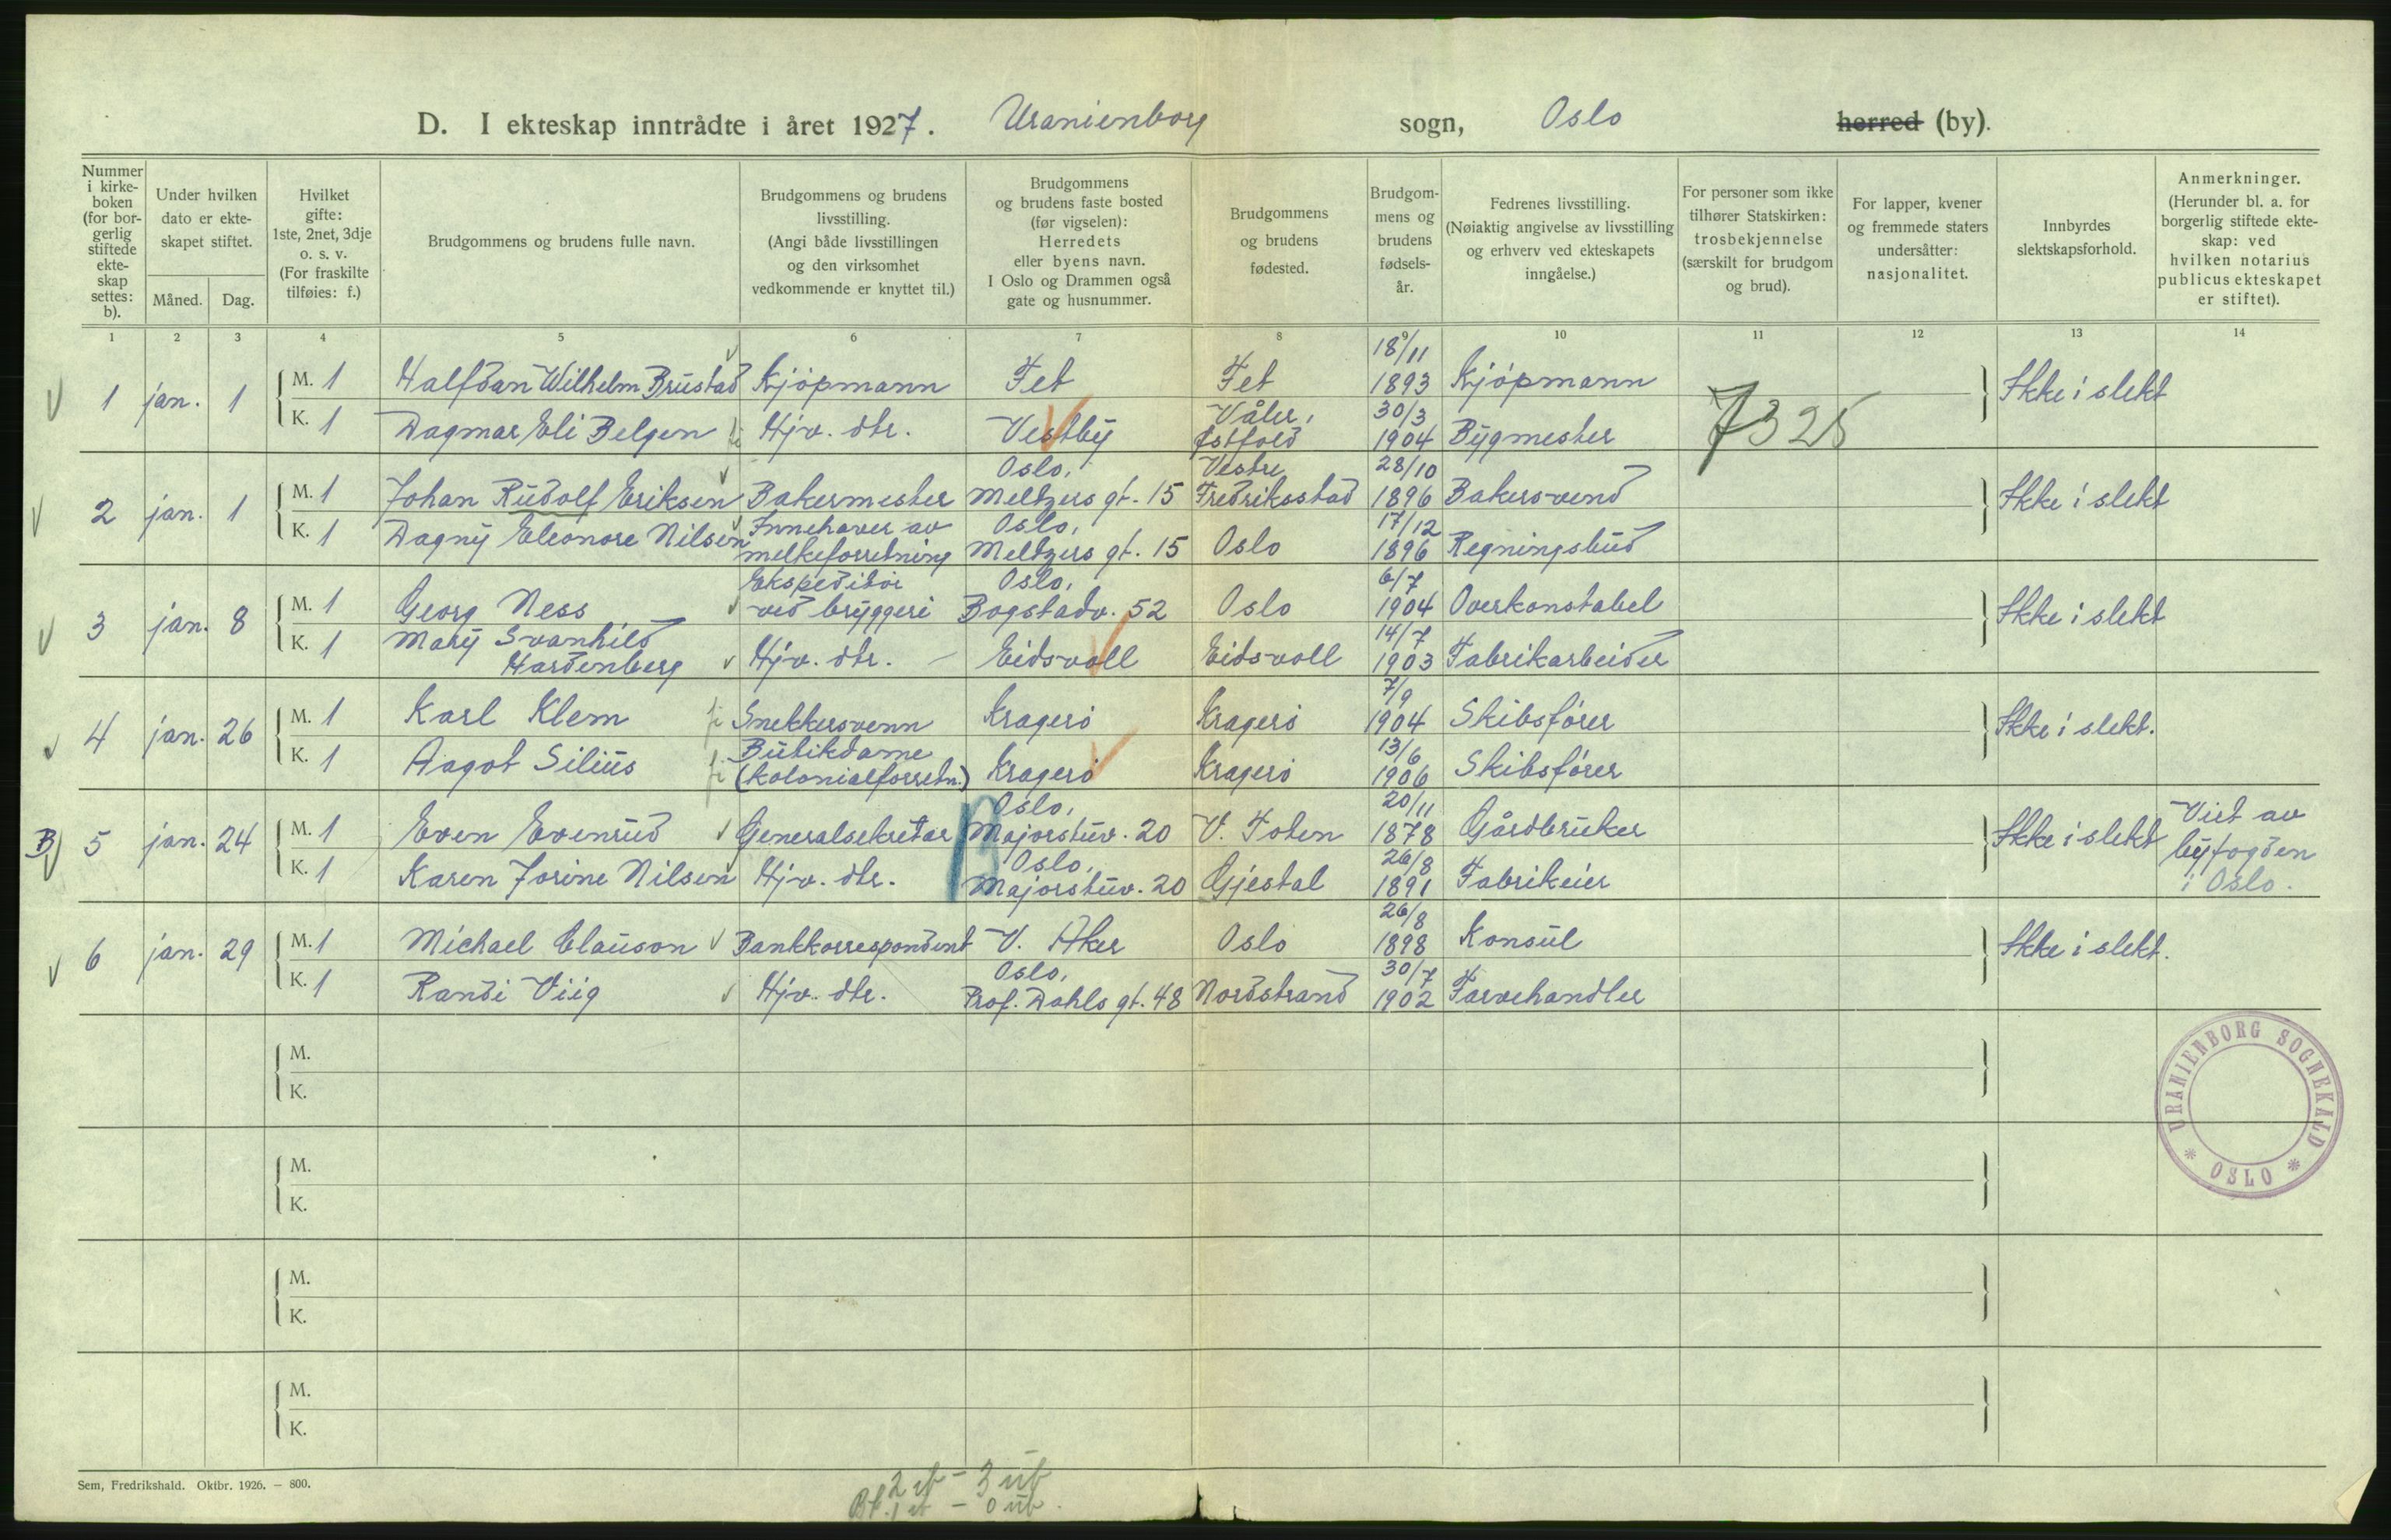 D. I ekteskap inntrådte i året 1927. Uranienborg sogn, Oslo herred (by).
Nummer i kirke-boken (for bor-gerlig stiftede ekte-skap settes: b).
Under hvilken dato er ekte-skapet stiftet.
Måned. Dag.
Hvilket gifte: 1ste, 2net, 3dje o. s. v. (For fraskilte tilføies: f.)
Brudgommens og brudens fulle navn.
Brudgommens og brudens livsstilling. (Angi både livsstillingen og den virksomhet vedkommende er knyttet til.)
Brudgommens og brudens faste bosted (før vigselen): Herredets eller byens navn. I Oslo og Drammen også gate og husnummer.
Brudgommens og brudens fødested.
Brudgom-mens og brudens fødsels-år.
Fedrenes livsstilling. (Nøiaktig angivelse av livsstilling og erhverv ved ekteskapets inngåelse.)
For personer som ikke tilhører Statskirken: trosbekjennelse (særskilt for brudgom og brud).
For lapper, kvener og fremmede staters undersåtter: nasjonalitet.
Innbyrdes slektskapsforhold.
Anmerkninger. (Herunder bl. a. for borgerlig stiftede ekte-skap: ved hvilken notarius publicus ekteskapet er stiftet).
1 2 3 4 5 6 7 8 9 10 11 12 13 14
1 jan. 1 M. 1 Halfdan Wilhelm Brustad Kjöpmann Fet Fet 18/11 1893 Kjöpmann Ikke i slekt
K. 1 Dagmar Eli Belgen Hjv. dtr. Vestby Våler, Østfold 30/3 1904 Bygmester 7325
2 jan. 1 M. 1 Johan Rudolf Eriksen Bakermester Oslo, Meltzers gt. 15 Vestre Fredriksstad 28/10 1896 Bakersvend Ikke i slekt
K. 1 Dagny Eleonore Nilsen Innehaver av melkeforretning Oslo, Meltzers gt. 15 Oslo 17/12 1896 Regningsbud
3 jan. 8 M. 1 Georg Ness Ekspeditör ved bryggeri Oslo, Bogstadv. 52 Oslo 6/7 1904 Overkonstabel Ikke i slekt
K. 1 Mary Svanhild Hardenberg Hjv. dtr. Eidsvoll Eidsvoll 14/7 1903 Fabrikarbeider
4 jan. 26 M. 1 Karl Klem Snekkersvenn Kragerö Kragerö 7/9 1904 Skibsförer Ikke i slekt.
K. 1 Aagot Silius Butikdame (kolonialforretn.) Kragerö Kragerö 13/6 1906 Skibsförer
B 5 jan. 24 M. 1 Even Evenrud Generalsekretær Oslo, Majorstuv. 20 V. Toten 20/11 1878 Gårdbruker Ikke i slekt Viet av byfogden i Oslo.
K. 1 Karen Jorine Nilsen Hjv. dtr. Oslo, Majorstuv. 20 Gjestal 26/8 1891 Fabrikeier
6 jan. 29 M. 1 Michael Clauson Bankkorrespondent V. Aker Oslo 26/8 1898 Konsul Ikke i slekt.
K. 1 Randi Viig Hjv. dtr. Oslo, Prof. Dahls gt. 48 Nordstrand 30/7 1902 Farvehandler
M.
K.
M.
K.
M.
K.
M.
K.
URANIENBORG SOGNEKALD * OSLO *
Sem, Fredrikshald. Oktbr. 1926. — 800.
2 ib - 3 ub
1 ib - 0 ub.